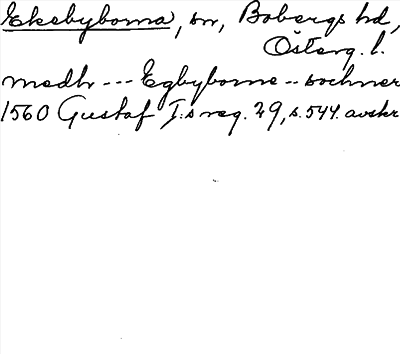 Ekebyborna, sn, Bobergs hd,
Österg. l.
medh --- Egbyborne -- sochner
1560 Gustaf I:s reg. 29, s. 544. avskr